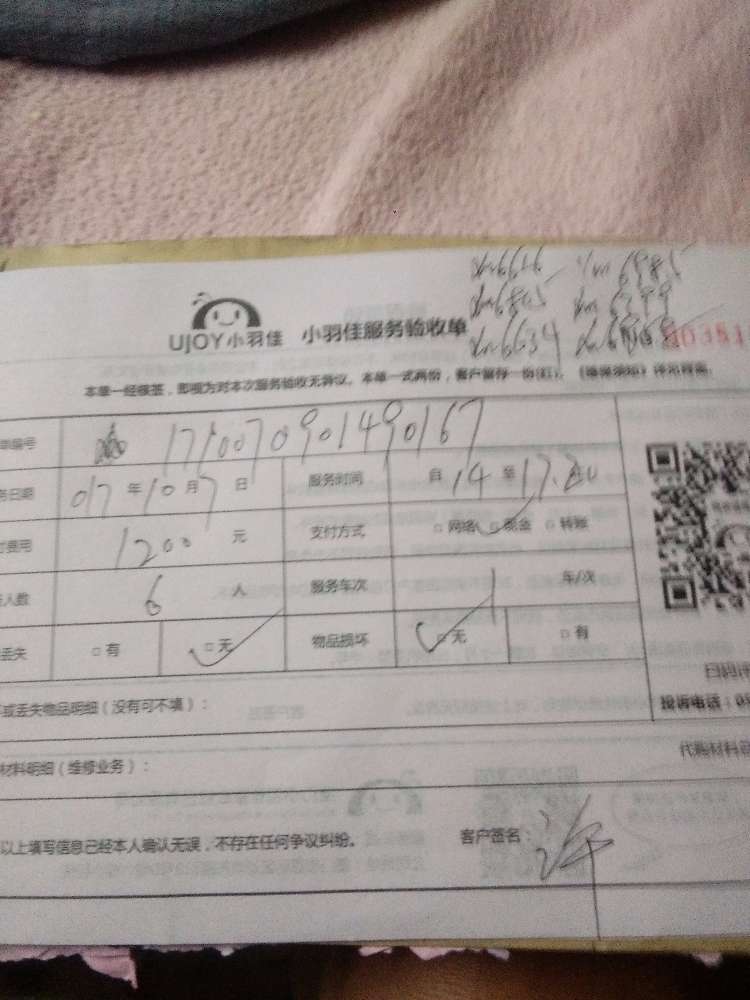 xm6616 xm6985
xm6805 xm6299
xm6634
UJOY小羽佳 小羽佳服务验收单
00381
本单一经领签，即视为对本次服务验收无异议。本单一式两份，客户留存一份(红)。
单编号 1710070901490167
务日期 017年10月7日 服务时间 自14至17.20
费用 1200 元 支付方式 □网络 □现金 □转账
人数 6 人 服务车次 1 车/次
丢失 □有 □无 物品损坏 □无 □有
扫码评
或丢失物品明细（没有可不填）： 投诉电话：0
材料明细（维修业务）： 代购材料
以上填写信息已经本人确认无误，不存在任何争议纠纷。 客户签名：许